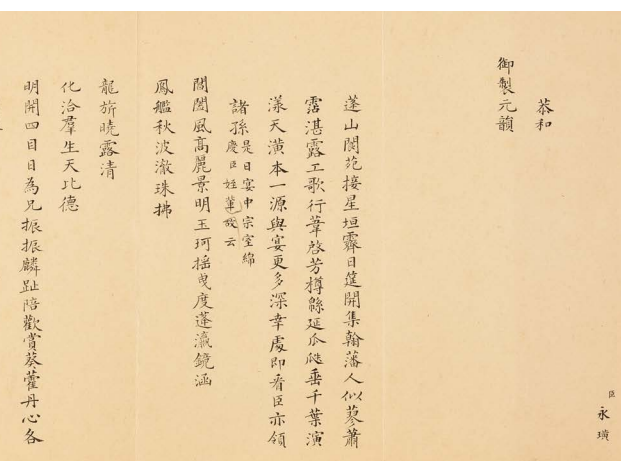 臣永璜
恭和
御製元韻
蓬山閬苑接星垣霽日筵開集翰藩人似蓼蕭
露湛露工歌行葦啓芳樽緜延瓜瓞垂千葉演
漾天潢本一源與宴更多深幸處即看臣亦領
諸孫是日宴中宗室綿慶臣姪輩云
閶闔風高麗景明玉珂搖曳度蓬瀛鏡涵
鳳艦秋波澈珠拂
龍旂曉露清
化洽羣生天比德
明開四目日為兄振振麟趾陪歡賞葵藿丹心各